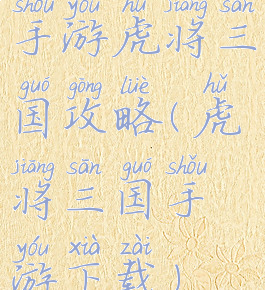 shǒu yóu hǔ jiāng sān
手游虎将三
guó gōng lüè hǔ
国攻略(虎
jiāng sān guó shǒu
将三国手
yóu xià zài
游下载)